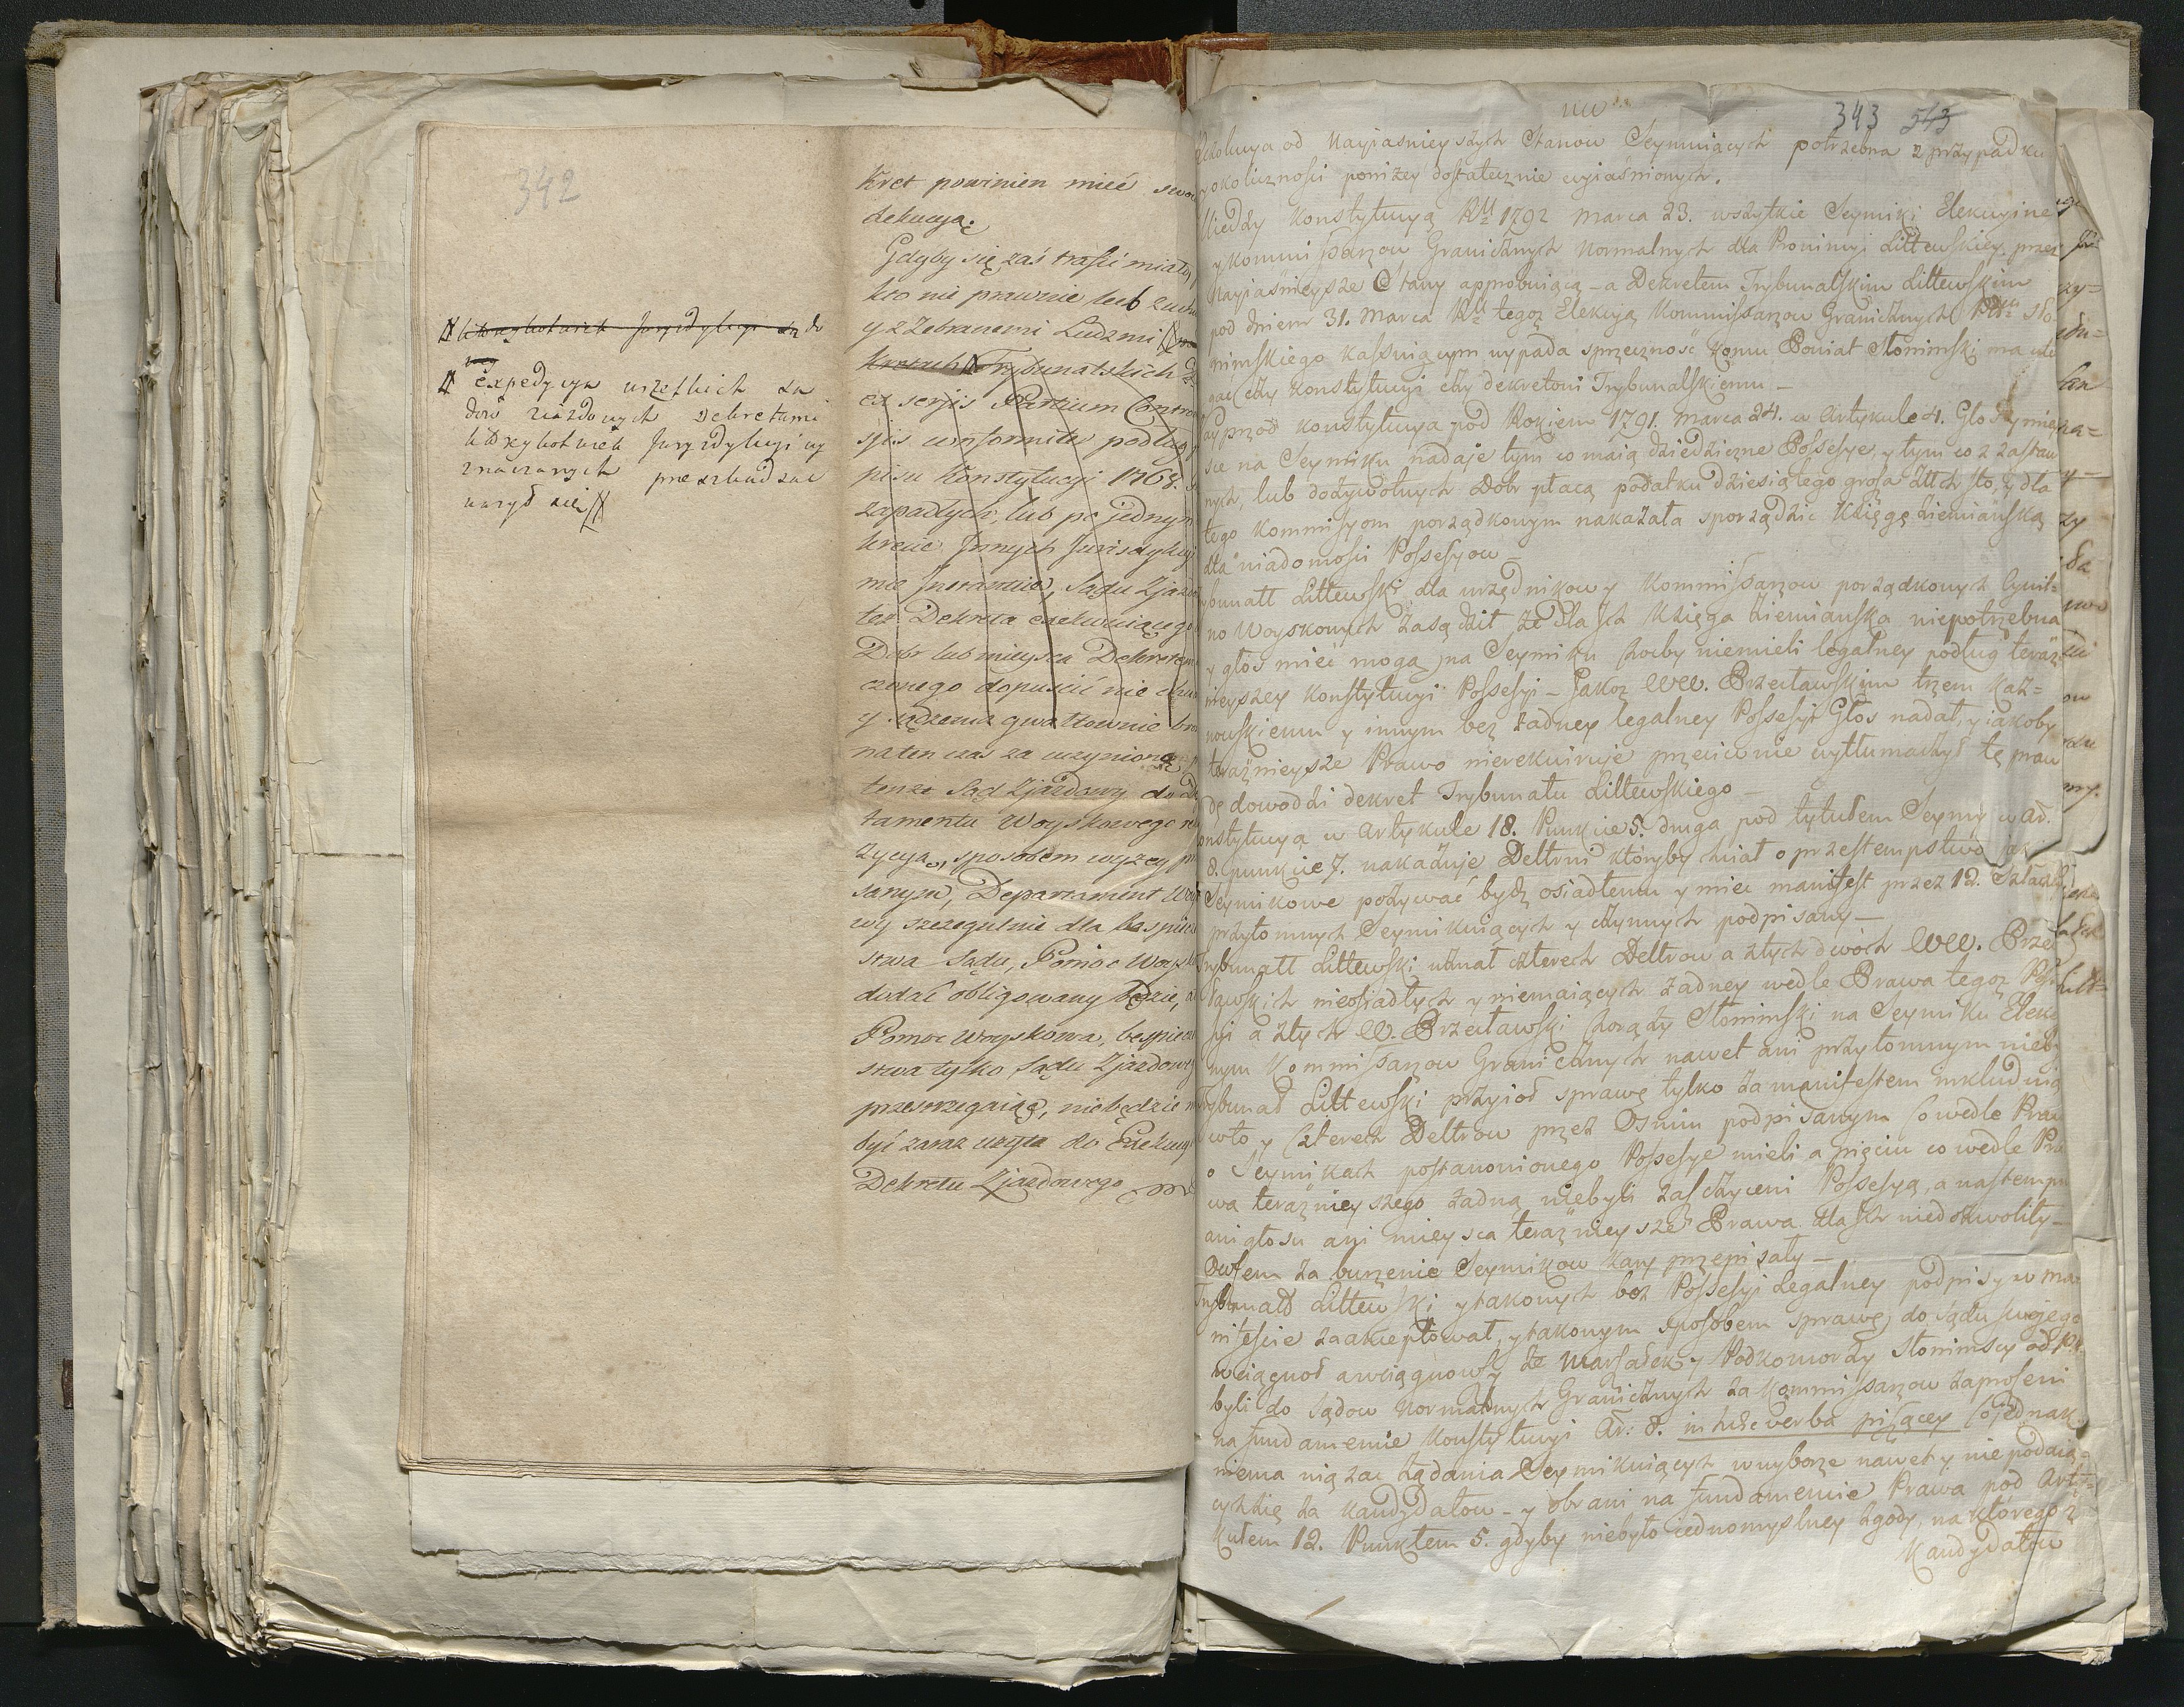 342
którzykolwiek Jurysdykcyi do
expedycya wszelkich Są
dów ziazdowych Dekretami
którzykolwiek Jurysdykcyi wy
znaczonych przeszkadzać
ważył się
kret powinien mieć swo
dekucyą.
Gdyby się zaś trafić miało,
kto nie prawnie lub zuch
y z Zebranemi Ludzmi
kretach Trybunalskich
ex serjis Partium Contro
sjis conformiter podług
pisu Konstytucyi 1768.
zapadłych, lub po jednym
krecie Innych Jurisdykcyi
nie Intrantie, Sądu Zjazdo
też Dekreta exekwuiącego
Dobr lub mieysca Dekretem
czonego dopuścić nie chcia
y sądzenia gwałtownie bro
na ten czas za uczynioną
tenże Sąd Zjazdowy do De
tamentu Woyskowego re
zycyą, sposobem wyżey
sanym, Departament Woy
wy szczegulnie dla bespiecz
stwa Sądu, Pomoc Woysk
dodać obligowany będzie, a
Pomoc Woyskowa, bespiecz
stwa tylko Sądu Zjazdoweg
przestrzegaiąc, nie będzie m
być zaraz użyta do Exekucy
Dekretu Zjazdowego
343 543
Rezolucya od Nayiasnieyszych Stanow Seymuiących potrzebna z przypadku
y okoliczności poniżey dostatecznie wyiaśnionych.
Między Konstytucyą Rku 1792 Marca 23. wszytkie Seymiki Elekcyine
y Kommissarzow Granicznych Normalnych dla Prowincyi Littewskiey przez
Nayiaśnieysze Stany approbuiącą - a Dekretem Trybunalskim Littewskim
pod dniem 31. Marca Rku tegoż Elekcyą Kommissarzow Granicznych Pttu Sło
nimskiego kassuiącym wypada sprzeczność komu Powiat Słonimski ma ule
gać czy Konstytucyi czy dekretowi Trybunalskiemu -
Nayprzod Konstytucya pod Rokiem 1791. Marca 24. w Artykule 4. Głosy mie
sce na Seymiku nadaje tym co maią dziedziczne Possesye y tym co z zastaw
nych, lub dożywotnych Dobr płacą podatku dziesiątego grosza Złłch sto, y dla
tego Kommissyom porządkowym nakazała sporządzić Księgę Ziemiańską
dla wiadomości Possesyow -
Trybunałł Littewski dla urzędnikow y Kommissarzow porządkowych Cywil=
no Woyskowych zasądził że dla Ich Księga Ziemianska niepotrzebna
y głos mieć mogą na Seymiku choćby niemieli legalney podług teraz
nieyszey Konstytucyi Possesyi - Jakoż WW. Przecławskim trzem Kaź=
nowskiemu y innym bez żadney legalney Possesyi Głos nadał, y jakoby
teraznieysze Prawo nierekwiruje przeciwnie wytłumaczył tę praw
dę dowodzi dekret Trybunału Littewskiego -
Konstytucya w Artykule 18. Punkcie 5. druga pod tytułem Seymy w Ar.
8. punkcie 7. nakazuje Deltrni któryby miał o przestempstwo jak
Seymikowe pozywać bydz osiadłemu y mieć manifest przez 12. Szlachty
przytomnych Seymikuiących y czynnych podpisany -
Trybunałł Littewski uznał czterech Deltrow a z tych dwóch WW. Prze
cławskich nieosiadłych y niemaiących żadney wedle Prawa tegoż Posse
syi a z tych W. Przecławski Chorąży Słonimski na Seymiku Elekcy
nym Kommissarzow Granicznych nawet ani przytomnym nieb
Trybunał Littewski przyioł sprawę tylko za manifestem inkluduią
wto y Czterech Deltrow przez Osmiu podpisanym co wedle Praw
o Seymikach postanowionego Possesye mieli a pięciu co wedle Pra
wa teraznieyszego żadną niebyli zaszczyceni Possesyą, a nastempn
ani głosu ani mieysca teraznieysze Prawa dla Ich niedozwoliły -
Owszem za burzenie Seymikow kary przepisały -
Trybunałł Littewski y takowych bez Possesyi Legalney podpisy w ma=
nifeście zaakceptował, y takowym sposobem sprawę do sądu swojego
wciągnoł a wciągnowszy że Marszałek y Podkomorzy Słonimscy od
byli do sądow Normalnych Granicznych za Kommissarzow zaproszeni
na fundamencie Konstytucyi Ar: 8. in haec verba piszącey Co jednak
niema uiążać żądania Seymikuiących w wyborze nawet y nie podaią=
cych się za Kandydatow - y obrani na fundamencie Prawa pod Arty=
kułem 12. Punktem 5. gdyby niebyło iednomyslney zgody, na którego z
Kandydatow